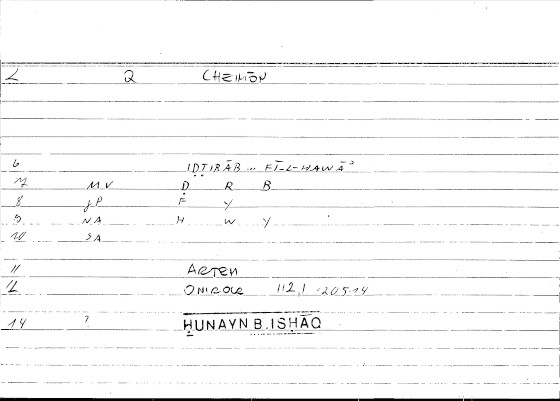 L 2 CHEIMŌN
6 IḌṬIRĀB .. FĪ-L-HAWĀʾ
7 MV Ḍ R B
8 gP F Y
9 NA H W Y
10 SA
11 ARTEM
12 ONIROCR 112,1 - 205,14
14 ? ḤUNAYN B. ISḤĀQ